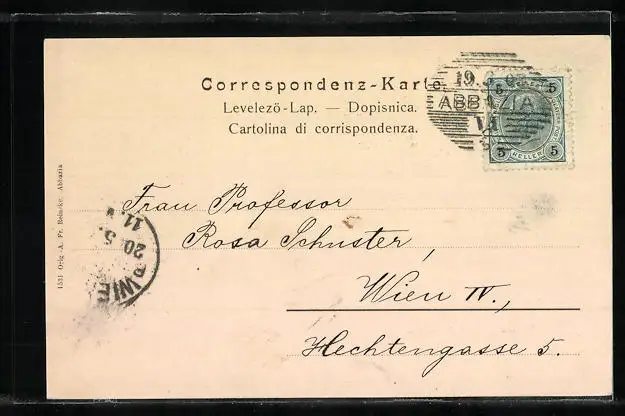 Correspondenz-Karte
Levelező-Lap. — Dopisnica.
Cartolina di corrispondenza.
19. 5.
ABBAZIA
5 5
5 HELLER 5
Frau Professor
Rosa Schuster,
Wien IV.,
Hechtengasse 5.
WIEN
20. 5.
11. V
1531 Orig.-A. Fr. Reinecke, Abbazia